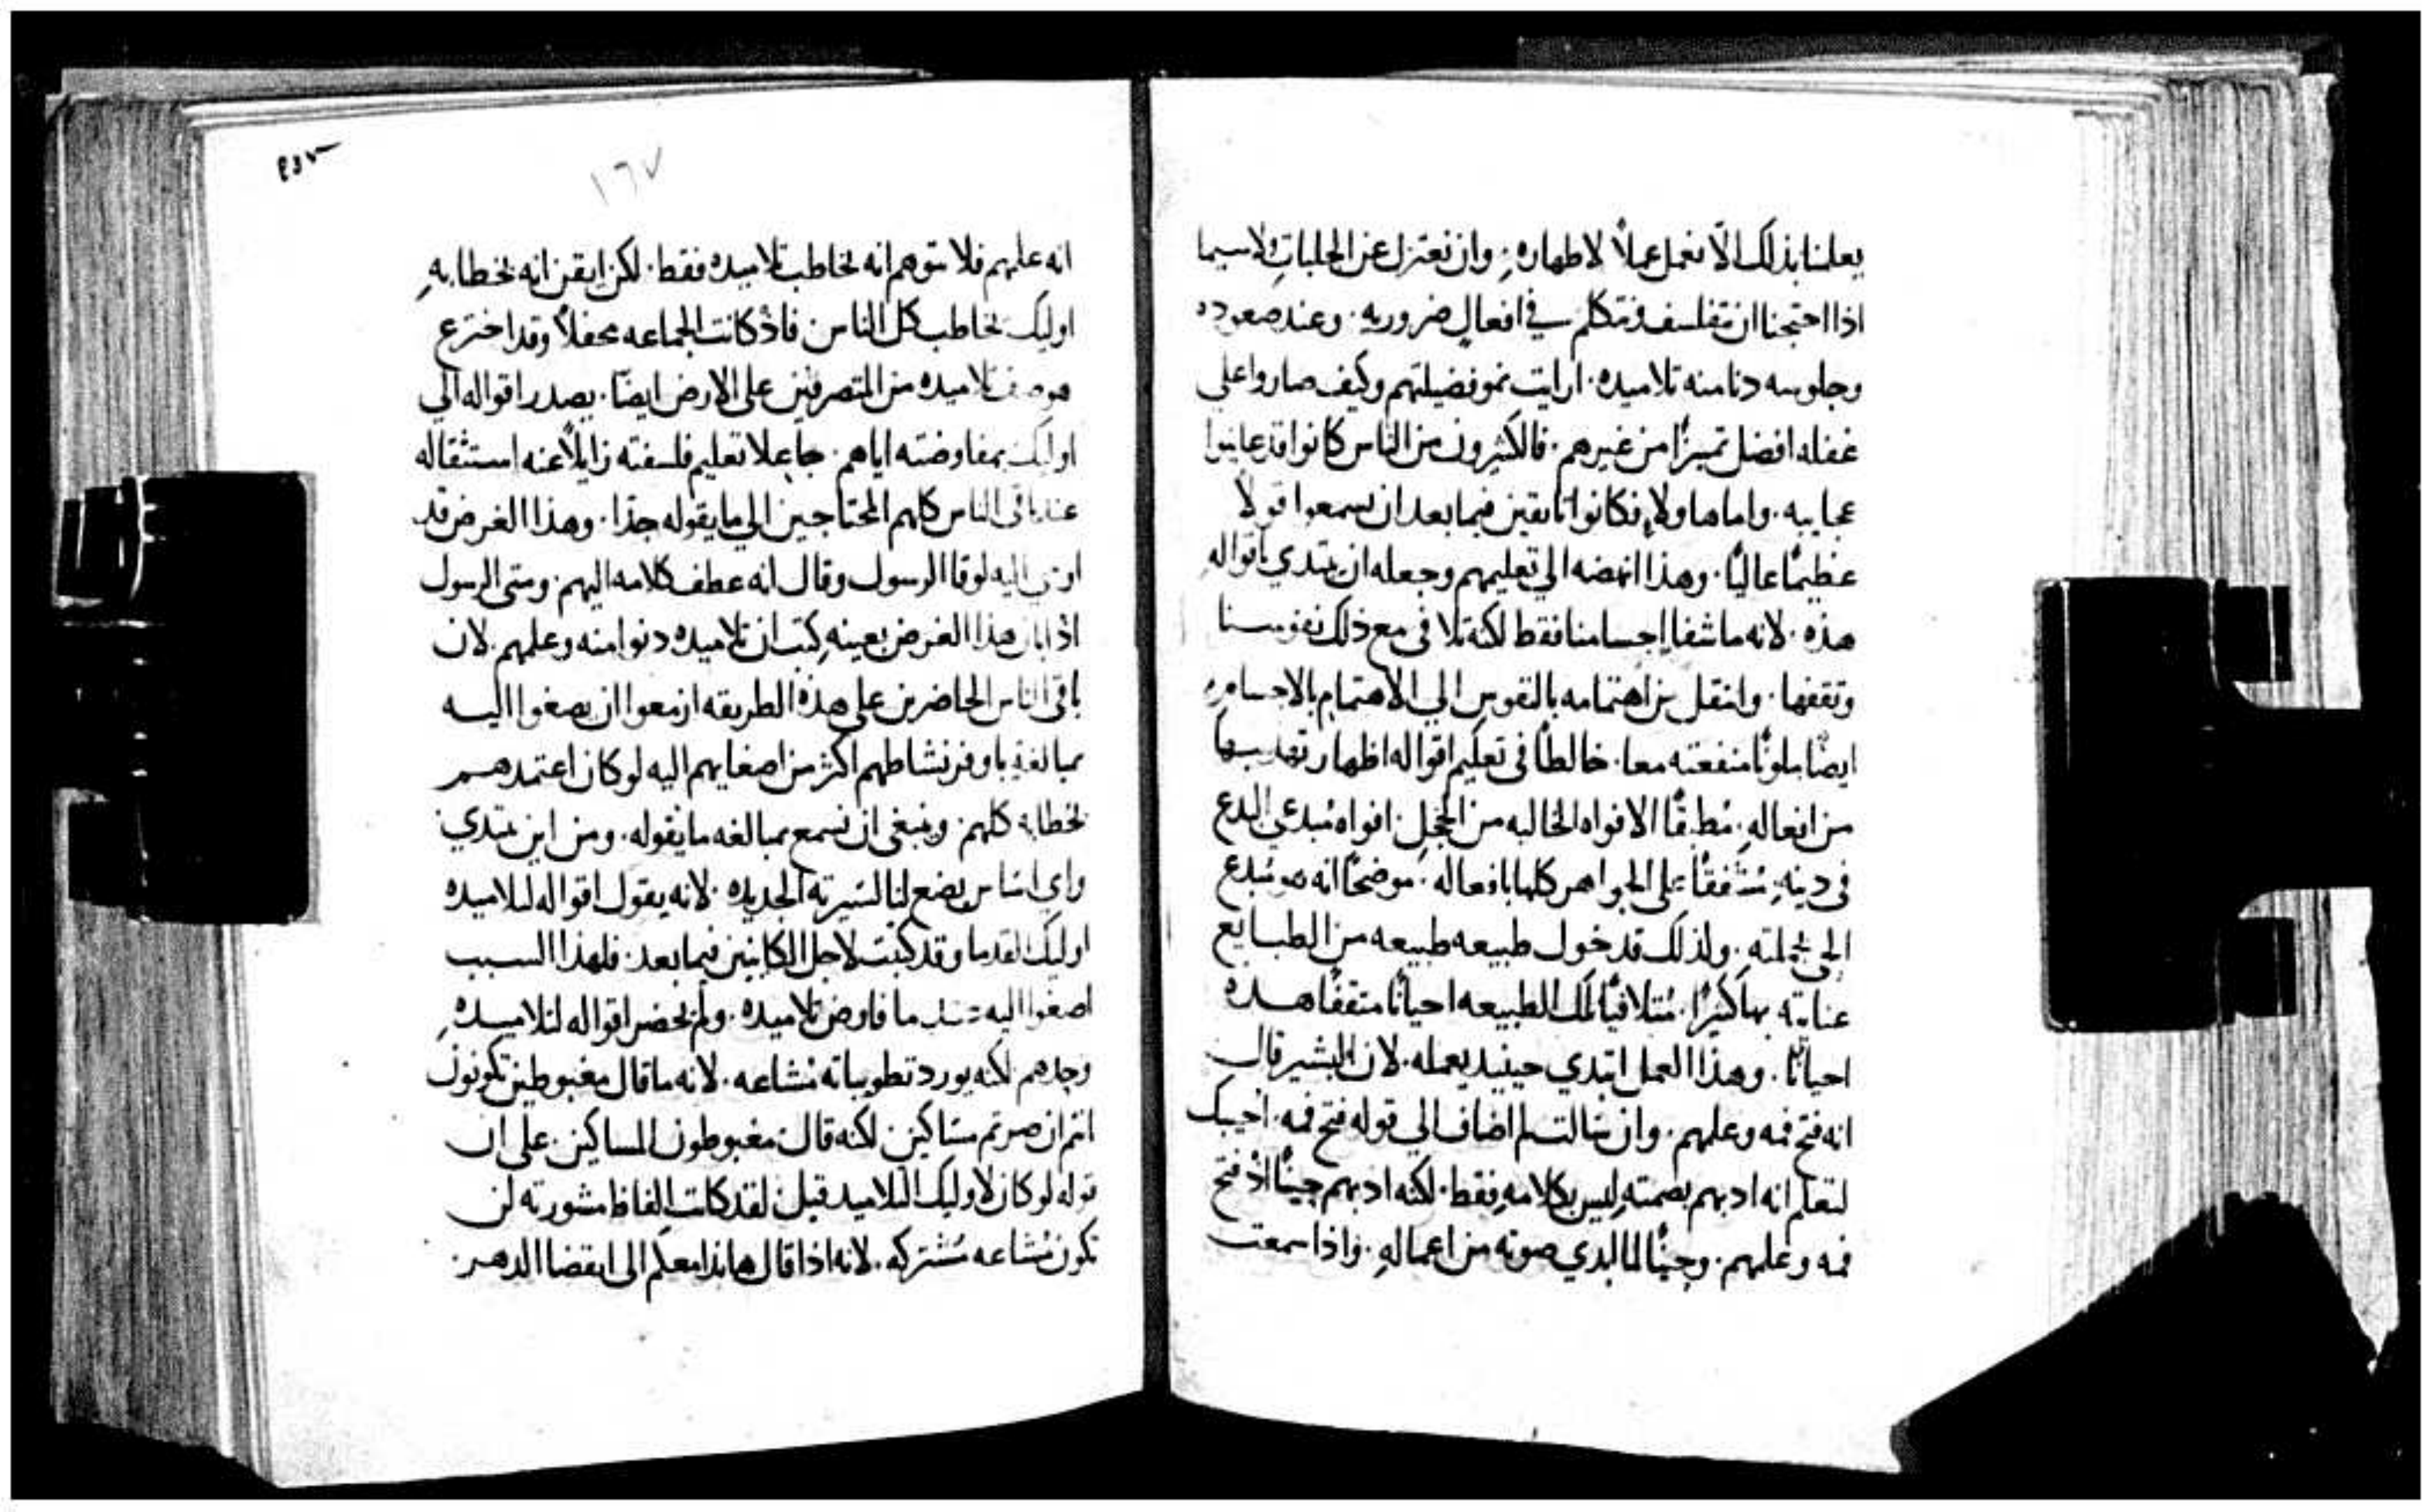 يعلمنا بذلك الّا نعمل عملاً لاطهاره. وان نعتزل عن الجلبات ولاسيما
اذا احتجنا ان نتفلسف ونتكلم في افعالٍ ضروريه. وعند صعوده
وجلوسه دنا منه تلاميده. ارايت نمو فضيلتهم وكيف صاروا على
غفله افضل تميزًا من غيرهم. فالكثيرون من الناس كانوا قد عاينوا
عجايبه. واما هاولاء فكانوا تايقين فيما بعد ان يسمعوا قولاً
عظيمًا عاليًا. وهذا انهضه الي تعليمهم وجعله ان يبتدي باقواله
هذه. لانه ما شفا اجسامنا فقط لكنه تلافى مع ذلك نفوسنا
وثقفها. وانتقل من اهتمامه بالنفوس الي الاهتمام بالاجسام
ايضًا ملونًا منفعته معا. خالطًا في تعليم اقواله اظهار تهديبها
من افعاله. مُطبقًا الافواه الخاليه من الخجل. افواه مُبدعي البدع
في دينه. مُشفقًا على الجواهر كلها بافعاله. موضحًا انه هو مُبدع
الحي بجملته. ولذلك قد خول طبيعه طبيعه من الطبايع
عنايته بها كثيرًا. مُتلافيًا تلك الطبيعه احيانًا مثقفًا هده
احيانًا. وهذا العمل ابتدي حينيد يعمله. لان البشير قال
انه فتح فمه وعلمهم. وان سالت لم اضاف الي قوله فتح فمه. اجيبك
لتعلم انه ادبهم بصمته ليس بكلامه فقط. لكنه ادبهم حينًا اذ فتح
فمه وعلمهم. وحينًا لما ابدي صوته من اعماله. واذا سمعت
٤٥٣
١٦٧
انه علمهم فلا تتوهم انه يخاطب تلاميده فقط. لكن ايقن انه بخطابه
اوليك يخاطب كل الناس. فاذ كانت الجماعه محفلاً وقد اخترع
تلاميده من المتصرفين على الارض ايضًا. يصدر اقواله الي
اوليك بمفاوضته اياهم. جاعلا تعليم فلسفته زايلاً عنه استثقاله
عند باقي الناس كلهم المحتاجين الي ما يقوله جدًا. وهذا الغرض قد
اليه لوقا الرسول وقال انه عطف كلامه اليهم. ومتى الرسول
اذ ابان هذا الغرض بعينه كتب ان تلاميده دنوا منه وعلمهم. لان
باقي الناس الحاضرين على هذه الطريقه ازمعوا ان يصغوا اليه
بمبالغه باوفر نشاطهم اكثر من اصغايهم اليه لو كان اعتمدهم
بخطابه كلهم. وينبغي ان نسمع بمبالغه ما يقوله. ومن اين يبتدي
واي اساس يضع لنا لسيرته الجديده. لانه يقول اقواله لتلاميده
اوليك القدما وقد كتبت لاجل الكاينين فيما بعد. فلهذا السبب
اصغوا اليه عند ما فاوض تلاميده. ولم يحضر اقواله لتلاميده
وحدهم لكنه يورد تطويباته مُشاعه. لانه ما قال مغبوطين تكونون
انتم ان صرتم مساكين. لكنه قال مغبوطون المساكين. على ان
قوله لو كان لاوليك التلاميد قيل. لقد كانت الفاظ مشورته لن
تكون مُشاعه مُشتركه. لانه اذا قال هانذا معكم الى انقضا الدهر.